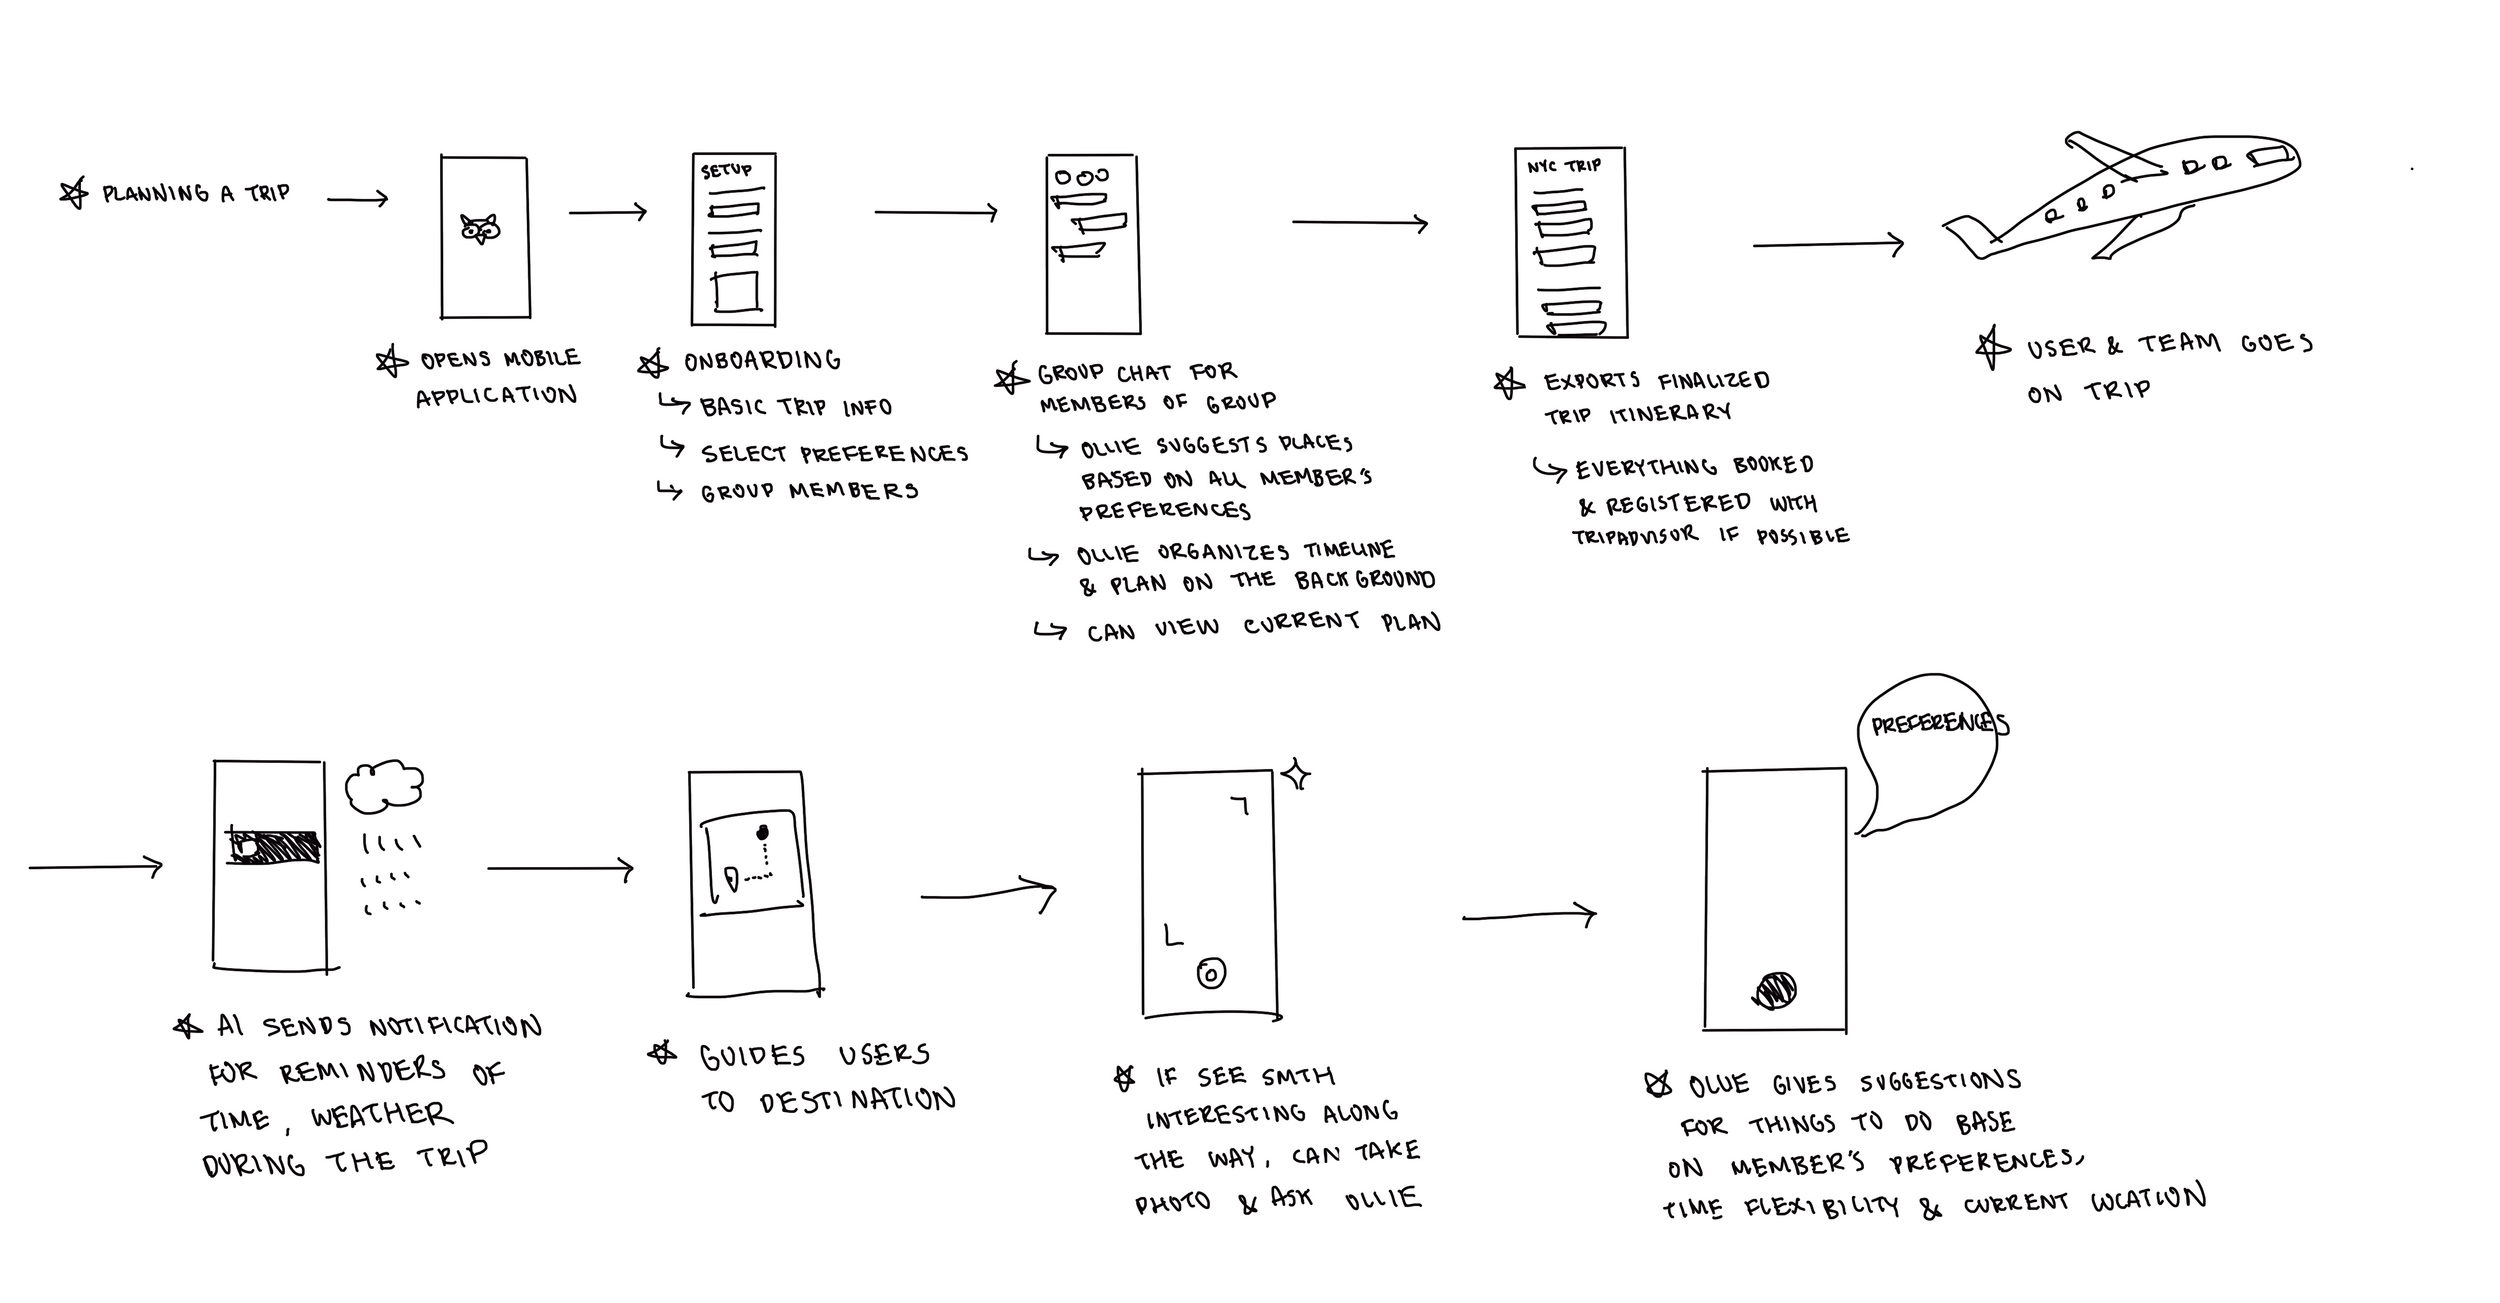 PLANNING A TRIP
OPENS MOBILE
APPLICATION
SETUP
ONBOARDING
BASIC TRIP INFO
SELECT PREFERENCES
GROUP MEMBERS
GROUP CHAT FOR
MEMBERS OF GROUP
OLLIE SUGGESTS PLACES
BASED ON ALL MEMBER'S
PREFERENCES
OLLIE ORGANIZES TIMELINE
& PLAN ON THE BACKGROUND
CAN VIEW CURRENT PLAN
NYC TRIP
EXPORTS FINALIZED
TRIP ITINERARY
EVERYTHING BOOKED
& REGISTERED WITH
TRIPADVISOR IF POSSIBLE
USER & TEAM GOES
ON TRIP
AI SENDS NOTIFICATION
FOR REMINDERS OF
TIME, WEATHER
DURING THE TRIP
GUIDES USERS
TO DESTINATION
IF SEE SMTH
INTERESTING ALONG
THE WAY, CAN TAKE
PHOTO & ASK OLLIE
PREFERENCES
OLLIE GIVES SUGGESTIONS
FOR THINGS TO DO BASE
ON MEMBER'S PREFERENCES,
TIME FLEXIBILITY & CURRENT LOCATION